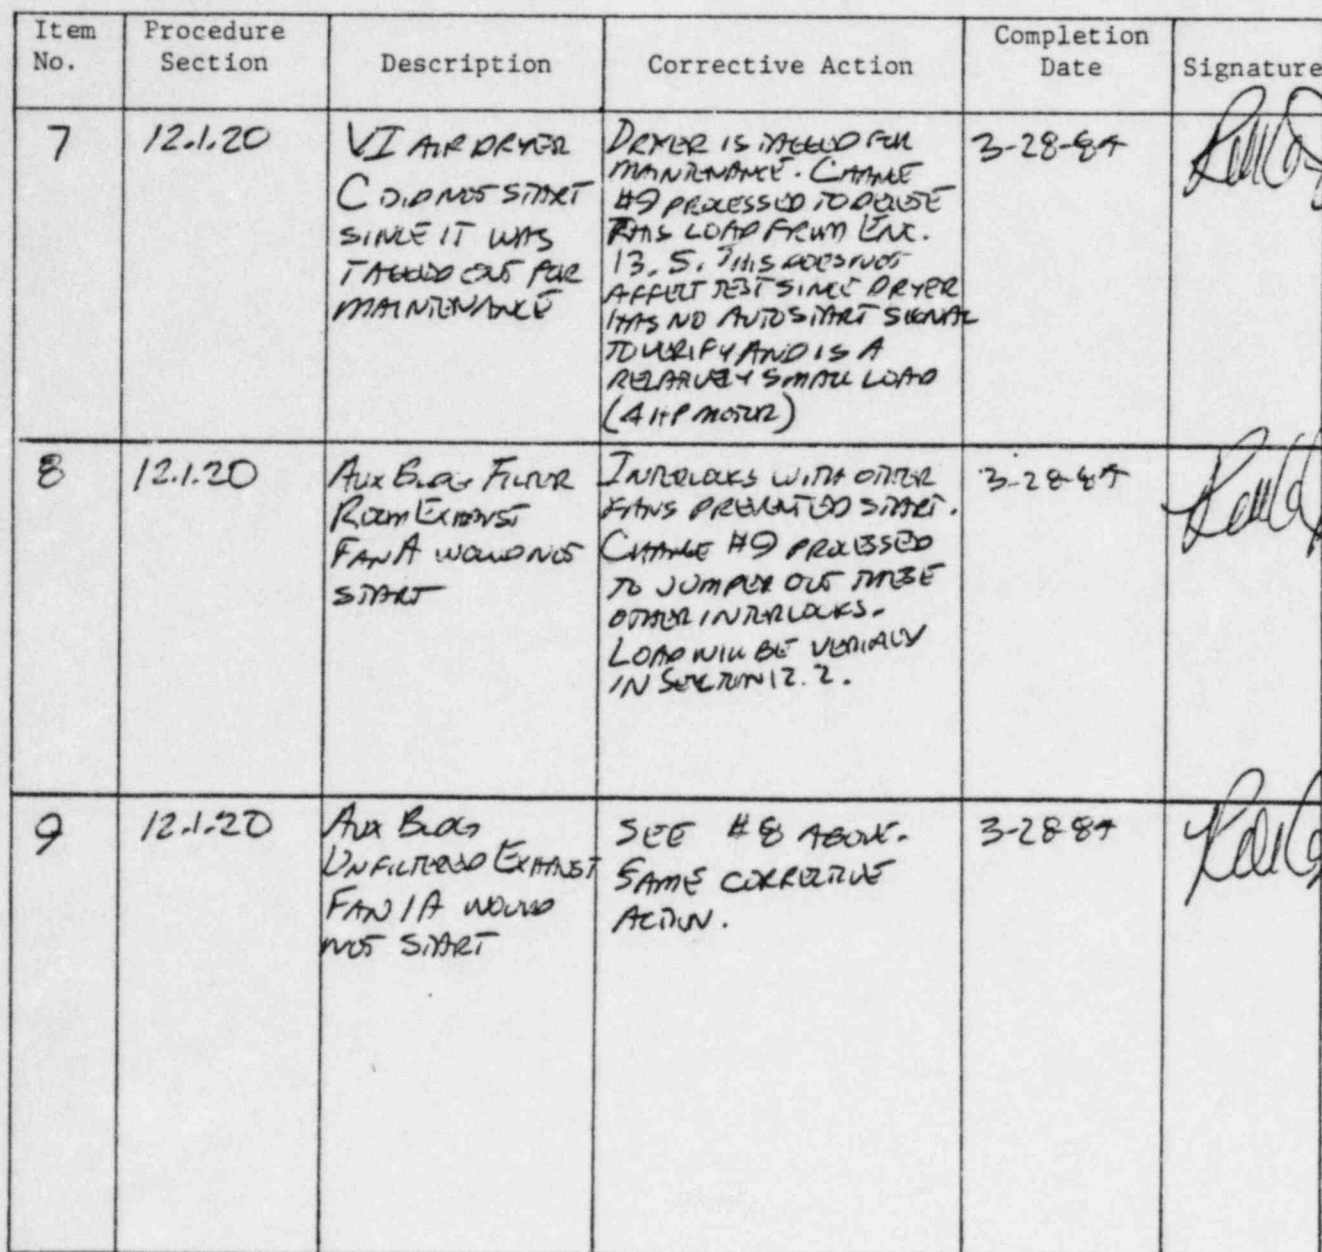 Item No.
Procedure Section
Description
Corrective Action
Completion Date
Signature
7
12.1.20
VI AIR DRYER
C DID NOT START
SINCE IT WAS
TAGGED OUT FOR
MAINTENANCE
DRYER IS TAGGED FOR
MAINTENANCE. CHANGE
#9 PROCESSED TO DELETE
THIS LOAD FROM ENC.
13.5. THIS DOES NOT
AFFECT TEST SINCE DRYER
HAS NO AUTOSTART SIGNAL
TO VERIFY AND IS A
RELATIVELY SMALL LOAD
(4 HP MOTOR)
3-28-84
8
12.1.20
AUX BLDG FILTER
ROOM EXHAUST
FAN A WOULD NOT
START
INTERLOCKS WITH OTHER
FANS PREVENTED START.
CHANGE #9 PROCESSED
TO JUMPER OUT THESE
OTHER INTERLOCKS.
LOAD WILL BE VERIFIED
IN SECTION 12.2.
3-28-84
9
12.1.20
AUX BLDG
UNFILTERED EXHAUST
FAN 1A WOULD
NOT START
SEE #8 ABOVE.
SAME CORRECTIVE
ACTION.
3-28-84